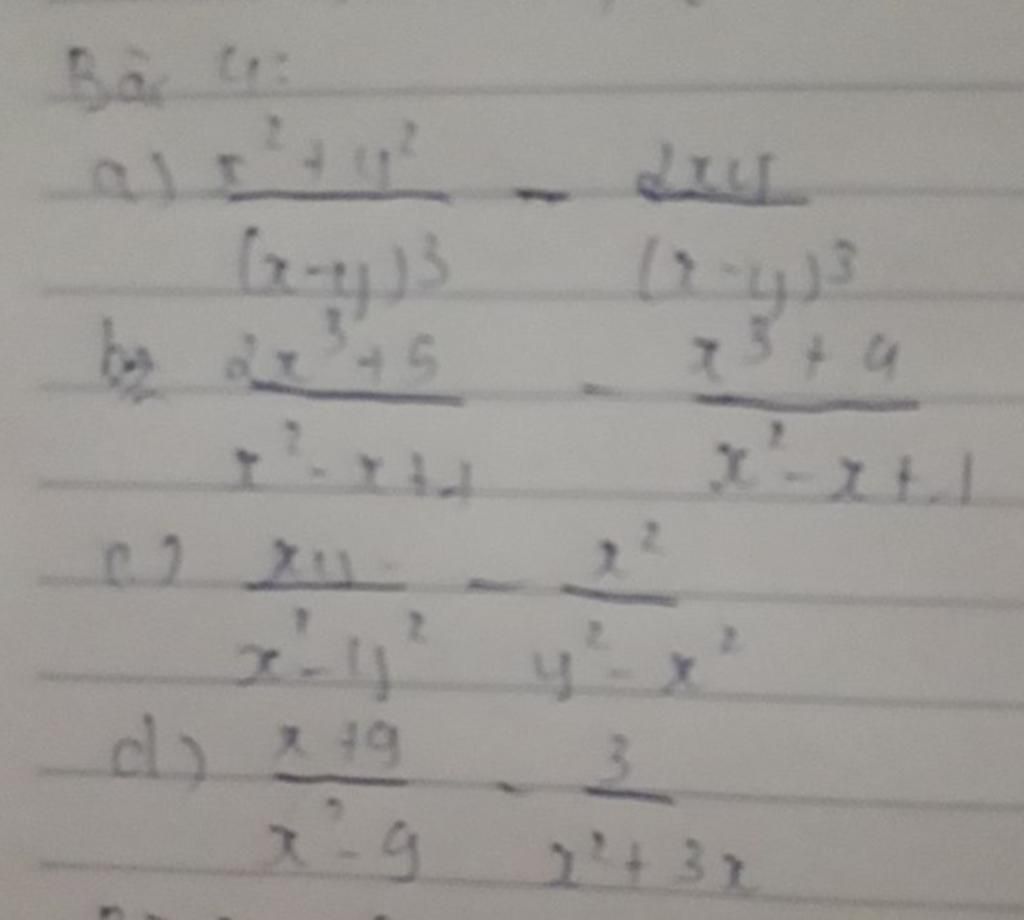 Bài 4:
a) \frac{x^2+y^2}{(x-y)^3} - \frac{2xy}{(x-y)^3}
b) \frac{2x^3+5}{x^2-x+1} - \frac{x^3+4}{x^2-x+1}
c) \frac{xy}{x^2-y^2} - \frac{x^2}{y^2-x^2}
d) \frac{x+9}{x^2-9} - \frac{3}{x^2+3x}